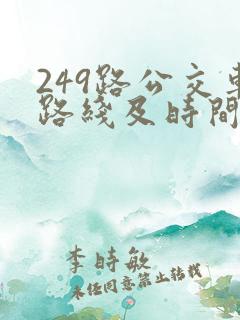 249路公交車
路綫及時間
李時敏
未經同意禁止轉載